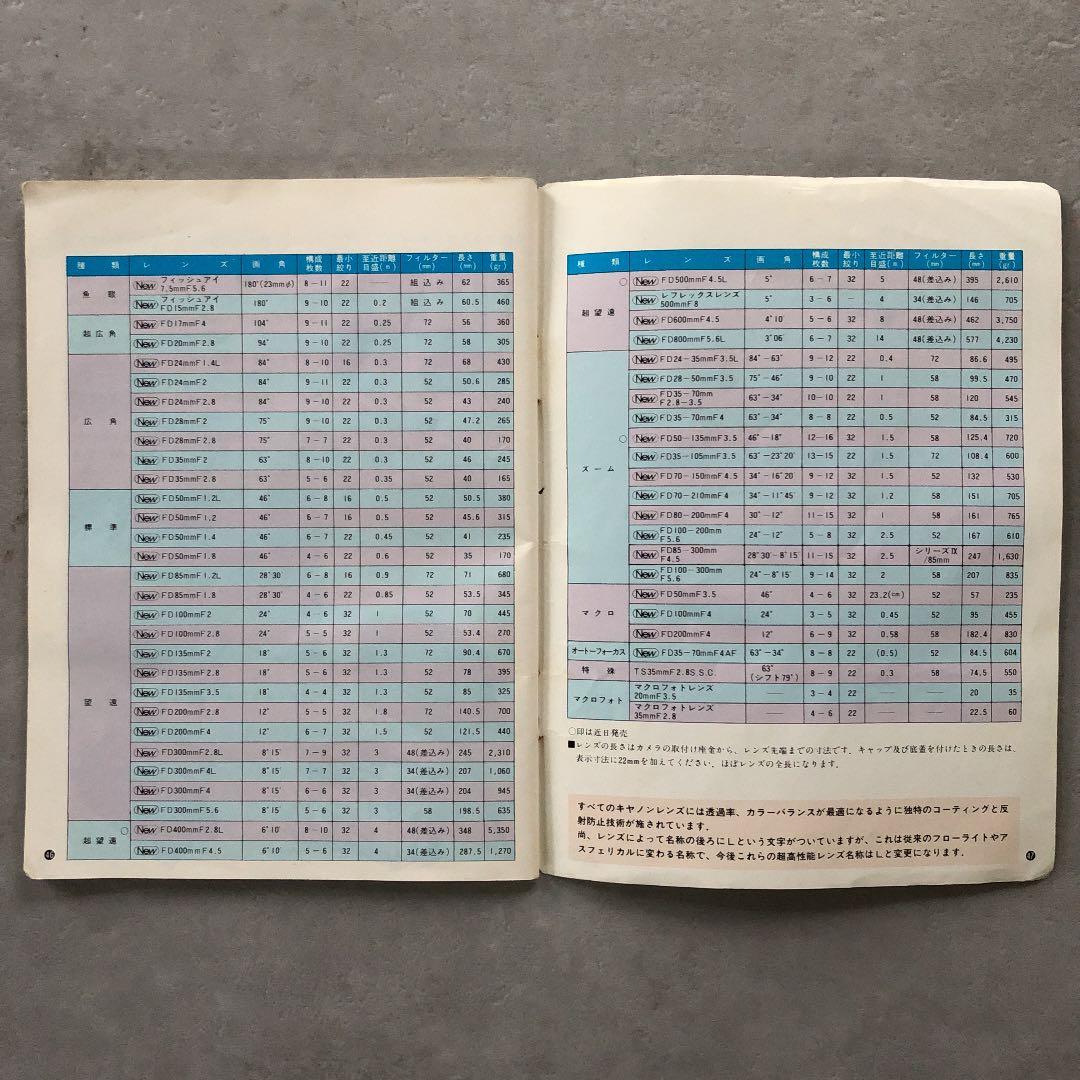 種類 レンズ 画角 構成枚数 最小絞り 至近距離目盛(m) フィルター(mm) 長さ(mm) 重量(gr)
魚眼 New フィッシュアイ 7.5mmF5.6 180°(23mmφ) 8-11 22 —— 組込み 62 365
New フィッシュアイ FD15mmF2.8 180° 9-10 22 0.2 組込み 60.5 460
超広角 New FD17mmF4 104° 9-11 22 0.25 72 56 360
New FD20mmF2.8 94° 9-10 22 0.25 72 58 305
広角 New FD24mmF1.4L 84° 8-10 16 0.3 72 68 430
New FD24mmF2 84° 9-11 22 0.3 52 50.6 285
New FD24mmF2.8 84° 9-10 22 0.3 52 43 240
New FD28mmF2 75° 9-10 22 0.3 52 47.2 265
New FD28mmF2.8 75° 7-7 22 0.3 52 40 170
New FD35mmF2 63° 8-10 22 0.3 52 46 245
New FD35mmF2.8 63° 5-6 22 0.35 52 40 165
標準 New FD50mmF1.2L 46° 6-8 16 0.5 52 50.5 380
New FD50mmF1.2 46° 6-7 16 0.5 52 45.6 315
New FD50mmF1.4 46° 6-7 22 0.45 52 41 235
New FD50mmF1.8 46° 4-6 22 0.6 52 35 170
望遠 New FD85mmF1.2L 28°30′ 6-8 16 0.9 72 71 680
New FD85mmF1.8 28°30′ 4-6 22 0.85 52 53.5 345
New FD100mmF2 24° 4-6 32 1 52 70 445
New FD100mmF2.8 24° 5-5 32 1 52 53.4 270
New FD135mmF2 18° 5-6 32 1.3 72 90.4 670
New FD135mmF2.8 18° 5-6 32 1.3 52 78 395
New FD135mmF3.5 18° 4-4 32 1.3 52 85 325
New FD200mmF2.8 12° 5-5 32 1.8 72 140.5 700
New FD200mmF4 12° 6-7 32 1.5 52 121.5 440
New FD300mmF2.8L 8°15′ 7-9 32 3 48(差込み) 245 2,310
New FD300mmF4L 8°15′ 7-7 32 3 34(差込み) 207 1,060
New FD300mmF4 8°15′ 6-6 32 3 34(差込み) 204 945
New FD300mmF5.6 8°15′ 5-6 32 3 58 198.5 635
超望遠 ○ New FD400mmF2.8L 6°10′ 8-10 32 4 48(差込み) 348 5,350
New FD400mmF4.5 6°10′ 5-6 32 4 34(差込み) 287.5 1,270
46
種類 レンズ 画角 構成枚数 最小絞り 至近距離目盛(m) フィルター(mm) 長さ(mm) 重量(gr)
超望遠 ○ New FD500mmF4.5L 5° 6-7 32 5 48(差込み) 395 2,610
New レフレックスレンズ 500mmF8 5° 3-6 4 34(差込み) 146 705
New FD600mmF4.5 4°10′ 5-6 32 8 48(差込み) 462 3,750
New FD800mmF5.6L 3°06′ 6-7 32 14 48(差込み) 577 4,230
ズーム New FD24-35mmF3.5L 84°-63° 9-12 22 0.4 72 86.6 495
New FD28-50mmF3.5 75°-46° 9-10 22 1 58 99.5 470
New FD35-70mm F2.8-3.5 63°-34° 10-10 22 1 58 120 545
New FD35-70mmF4 63°-34° 8-8 22 0.5 52 84.5 315
○ New FD50-135mmF3.5 46°-18° 12-16 32 1.5 58 125.4 720
New FD35-105mmF3.5 63°-23°20′ 13-15 22 1.5 72 108.4 600
New FD70-150mmF4.5 34°-16°20′ 9-12 32 1.5 52 132 530
New FD70-210mmF4 34°-11°45′ 9-12 32 1.2 58 151 705
New FD80-200mmF4 30°-12° 11-15 32 1 58 161 765
New FD100-200mm F5.6 24°-12° 5-8 32 2.5 52 167 610
New FD85-300mm F4.5 28°30′-8°15′ 11-15 32 2.5 シリーズⅨ/85mm 247 1,630
New FD100-300mm F5.6 24°-8°15′ 9-14 32 2 58 207 835
マクロ New FD50mmF3.5 46° 4-6 32 23.2(cm) 52 57 235
New FD100mmF4 24° 3-5 32 0.45 52 95 455
New FD200mmF4 12° 6-9 32 0.58 58 182.4 830
オートーフォーカス New FD35-70mmF4AF 63°-34° 8-8 22 (0.5) 52 84.5 604
特殊 TS35mmF2.8S.S.C. 63°(シフト79°) 8-9 22 0.3 58 74.5 550
マクロフォト マクロフォトレンズ 20mmF3.5 —— 3-4 22 —— —— 20 35
マクロフォトレンズ 35mmF2.8 —— 4-6 22 —— —— 22.5 60
○印は近日発売
■レンズの長さはカメラの取付け座金から、レンズ先端までの寸法です。キャップ及び底蓋を付けたときの長さは、
表示寸法に22mmを加えてください。ほぼレンズの全長になります。
すべてのキヤノンレンズには透過率、カラーバランスが最適になるように独特のコーティングと反
射防止技術が施されています。
尚、レンズによって名称の後ろにLという文字がついていますが、これは従来のフローライトやア
スフェリカルに変わる名称で、今後これらの超高性能レンズ名称はLと変更になります。
47